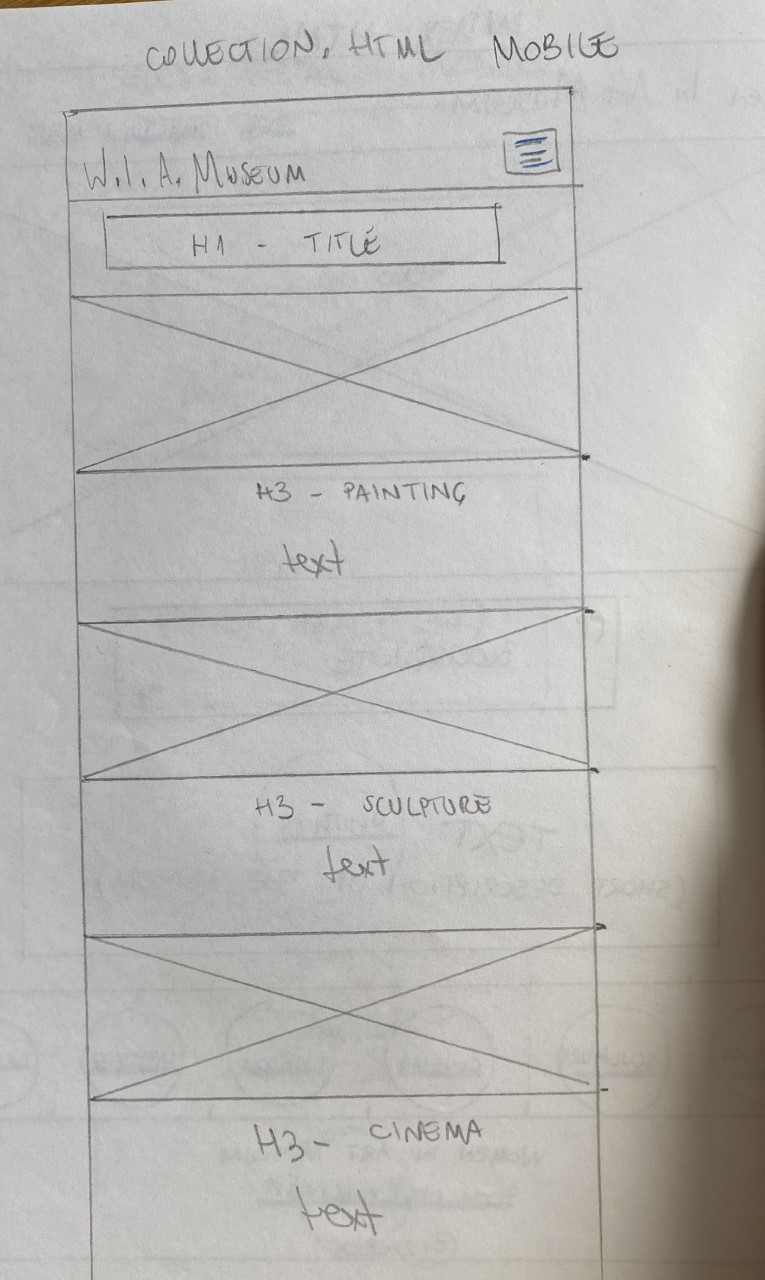 COLLECTION. HTML MOBILE
W.I.A. MUSEUM
H1 - TITLE
H3 - PAINTING
text
H3 - SCULPTURE
text
H3 - CINEMA
text